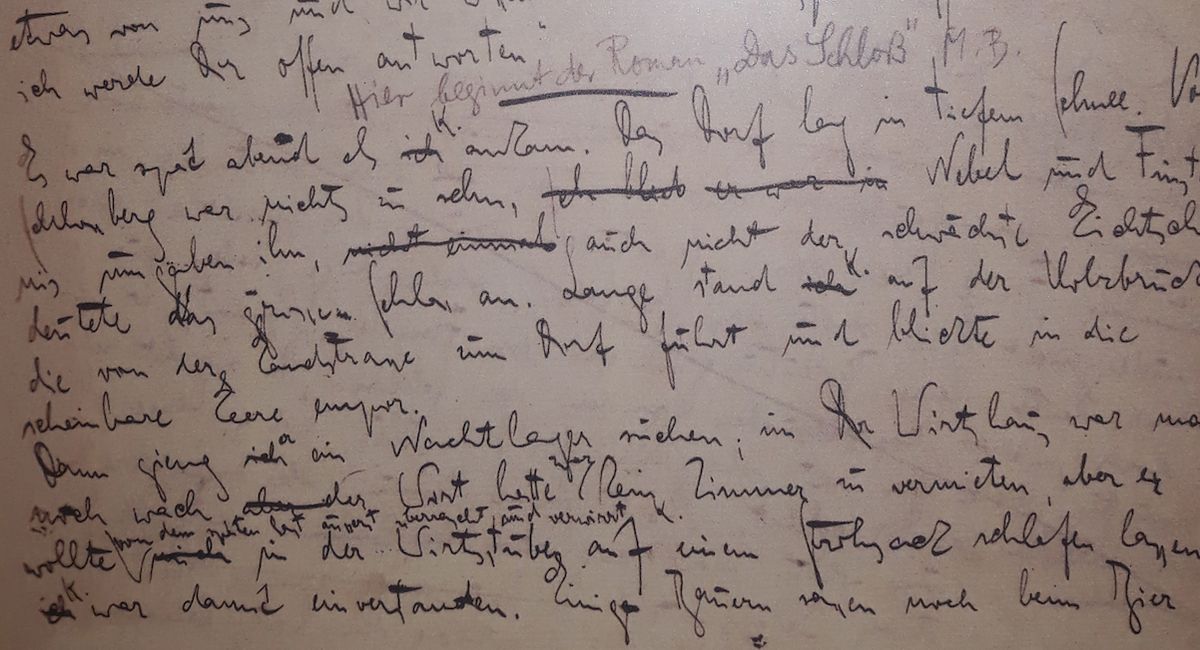 etwas von uns und wir
ich werde Dir offen antworten"
Hier beginnt der Roman „Das Schloß" M.B.
K.
Es war spät abend als ich ankam. Das Dorf lag in tiefem Schnee. Vo
Schlossberg war nichts zu sehn, ich blieb er war in Nebel und Finst
nis umgaben ihn, nicht einmal auch nicht der schwächste Lichtsch
K.
deutete das grosse Schloss an. Lange stand ich auf der Holzbrück
die von der Landstrasse zum Dorf führt und blickte in die
scheinbare Leere empor.
er
Dann gieng ich ein Nachtlager suchen; im Wirtshaus war ma
zwar
noch wach der Wirt hatte kein Zimmer zu vermieten, aber er
von dem späten Gast äusserst überrascht und verwirrt K.
wollte mich in der Wirtsstube auf einem Strohsack schlafen lassen
K.
ich war damit einverstanden. Einige Bauern sassen noch beim Bier